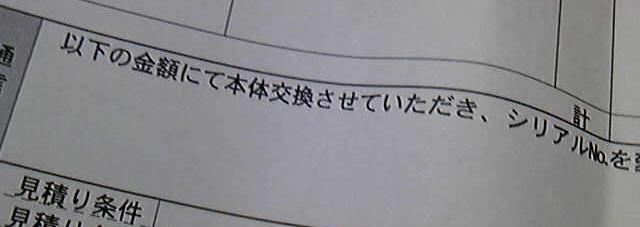 計
通
以下の金額にて本体交換させていただき、シリアルNo.を
見積り条件
見積り